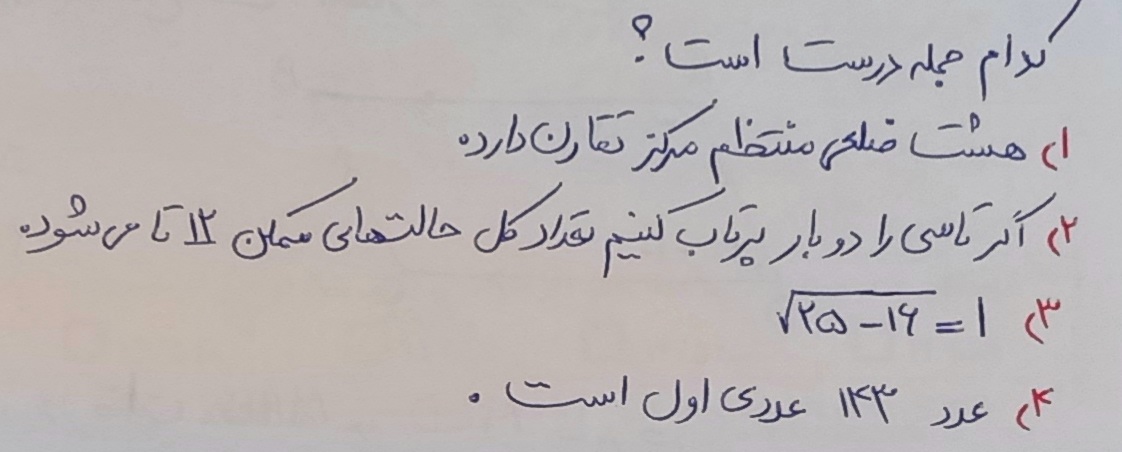 کدام جمله درست است؟
۱) هشت ضلعی منتظم مرکز تقارن دارد.
۲) اگر تاسی را دو بار پرتاب کنیم تعداد کل حالت‌های ممکن ۱۲ تا می‌شود.
۳) √۲۵-۱۶ = ۱
۴) عدد ۱۴۳ عددی اول است.